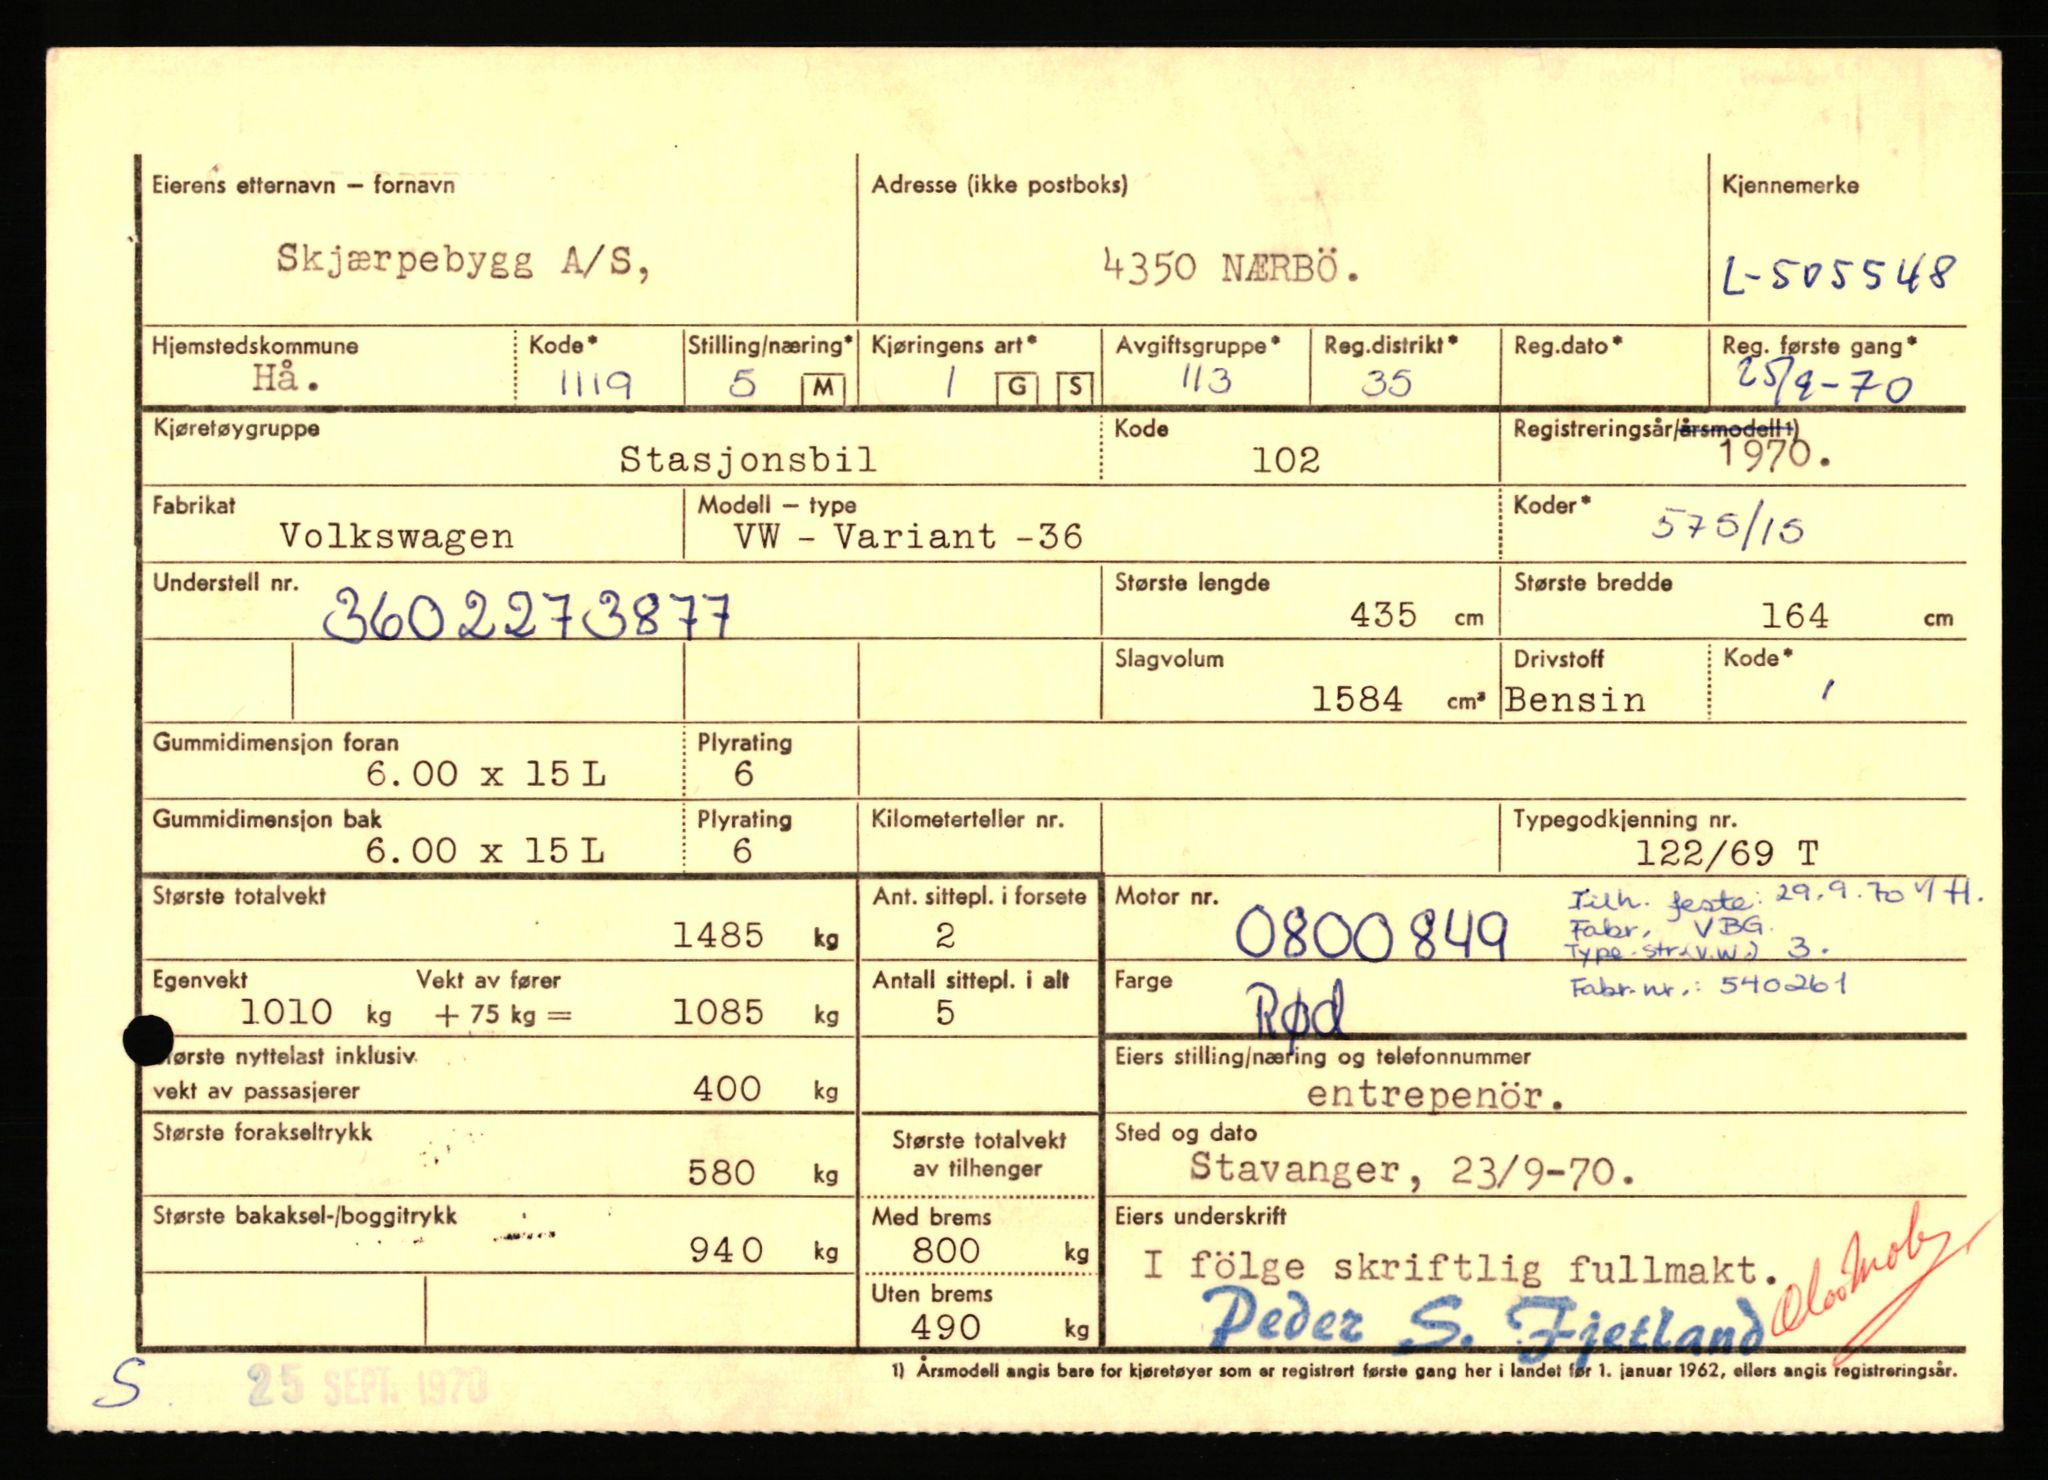 Eierens etternavn – fornavn   Adresse (ikke postboks)   Kjennemerke
Skjærpebygg A/S,   4350 NÆRBÖ.   L-505548
Hjemstedskommune   Kode*   Stilling/næring*   Kjøringens art*   Avgiftsgruppe*   Reg.distrikt*   Reg.dato*   Reg. første gang*
Hå.   1119   5   M   1   G   S   113   35   25/9-70
Kjøretøygruppe   Kode   Registreringsår/årsmodell 1)
Stasjonsbil   102   1970.
Fabrikat   Modell – type   Koder*
Volkswagen   VW - Variant -36   575/15
Understell nr.   Største lengde   Største bredde
3602273877   435 cm   164 cm
Slagvolum   Drivstoff   Kode*
1584 cm³   Bensin   1
Gummidimensjon foran   Plyrating
6.00 x 15 L   6
Gummidimensjon bak   Plyrating   Kilometerteller nr.   Typegodkjenning nr.
6.00 x 15 L   6   122/69 T
Største totalvekt   Ant. sittepl. i forsete   Motor nr.   Tilh. feste: 29.9.70 V/H.
1485 kg   2   0800849   Fabr. VBG.
Type str.(V.W.) 3.
Egenvekt   Vekt av fører   Antall sittepl. i alt   Farge   Fabr.nr.: 540261
1010 kg   + 75 kg =   1085 kg   5   Rød
Største nyttelast inklusiv   Eiers stilling/næring og telefonnummer
vekt av passasjerer   400 kg   entrepenör.
Største forakseltrykk   Største totalvekt   Sted og dato
580 kg   av tilhenger   Stavanger, 23/9-70.
Største bakaksel-/boggitrykk   Med brems   Eiers underskrift
940 kg   800 kg   I fölge skriftlig fullmakt.
Uten brems   Peder S. Fjetland
490 kg
1) Årsmodell angis bare for kjøretøyer som er registrert første gang her i landet før 1. januar 1962, ellers angis registreringsår.
S   25 SEPT. 1970